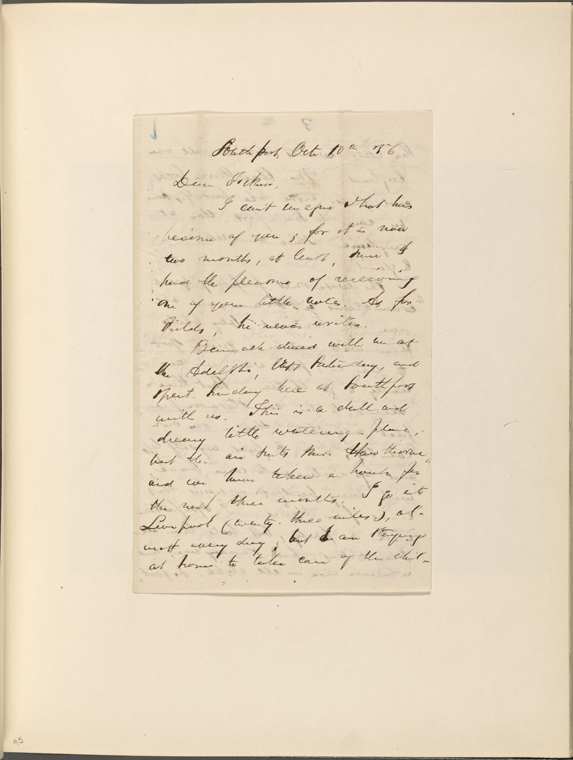 Southport, Oct 10th '56.
Dear Ticknor,
I can't imagine what has
become of you; for it is now
two months, at least, since I
had the pleasure of receiving
one of your little notes. As for
Fields, he never writes.
Bennoch dined with me at
the Adelphi, last Saturday, and
spent Sunday here at Southport
with us. This is a dull and
dreary little watering-place;
but the air suits Mrs. Hawthorne,
and we have taken a house for
the next three months. I go to
Liverpool (twenty three miles), al-
most every day; but I am staying
at home to take care of the chil-
95